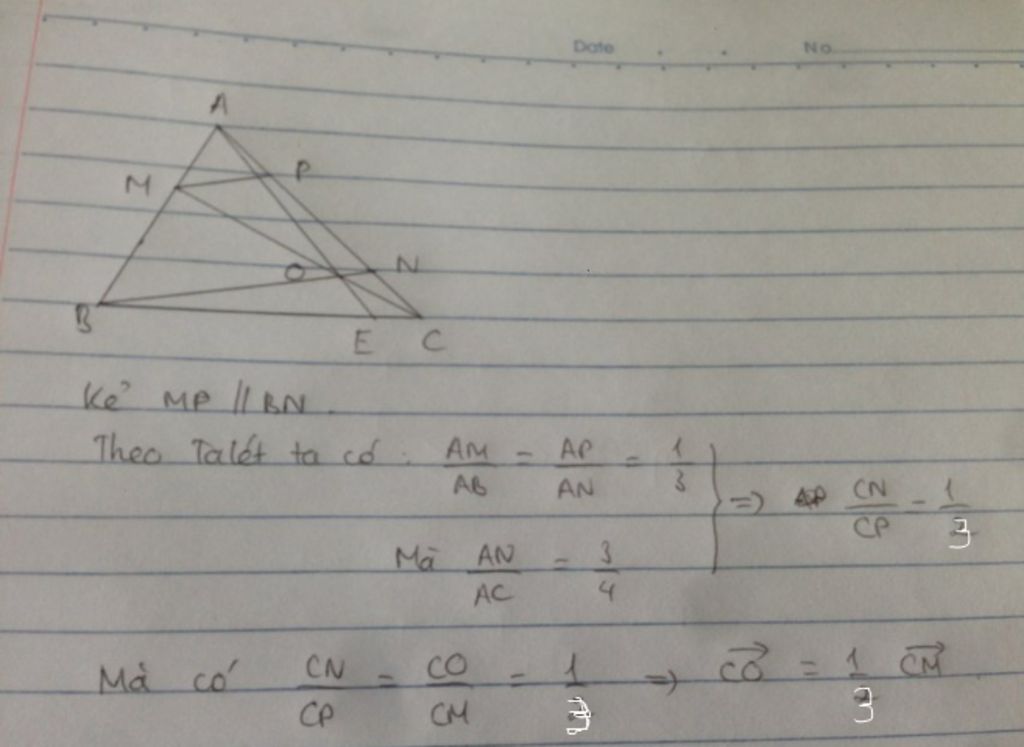 Date No
A
M P
O N
B E C
Kẻ MP // BN.
Theo Talét ta có: AM/AB = AP/AN = 1/3 } => CN/CP = 1/3
Mà AN/AC = 3/4
Mà có CN/CP = CO/CM = 1/3 => \overrightarrow{CO} = 1/3 \overrightarrow{CM}